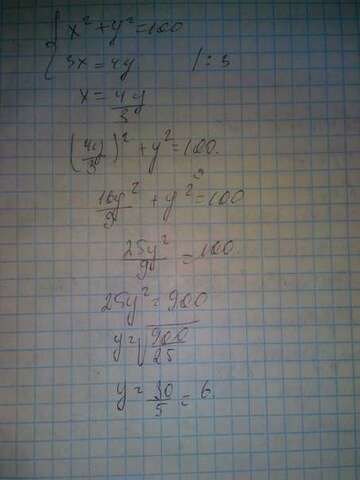 { x² + y² = 100
{ 3x = 4y /:3
x = 4y/3
(4y/3)² + y² = 100.
16y²/9 + y² = 100
25y²/9 = 100.
25y² = 900
y = √900/25
y = 30/5 = 6.